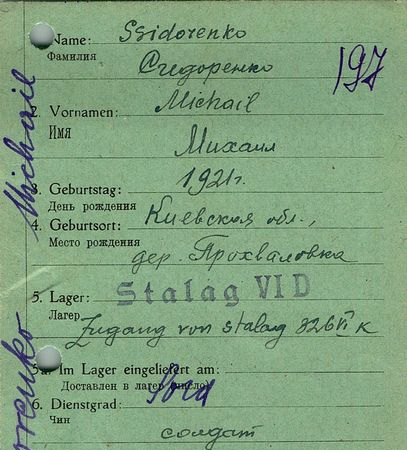 Name: Ssidorenko
Фамилия
Сидоренко
197
2. Vornamen: Michail
Имя
Михаил
3. Geburtstag: 1921г.
День рождения
4. Geburtsort: Киевская обл.,
Место рождения
дер. Прохваловка
5. Lager: Stalag VI D
Лагерь
Zugang von Stalag 326 VI K
5a. Im Lager eingeliefert am:
Доставлен в лагерь (число)
6. Dienstgrad: Sold
Чин
солдат
Michail
orenko